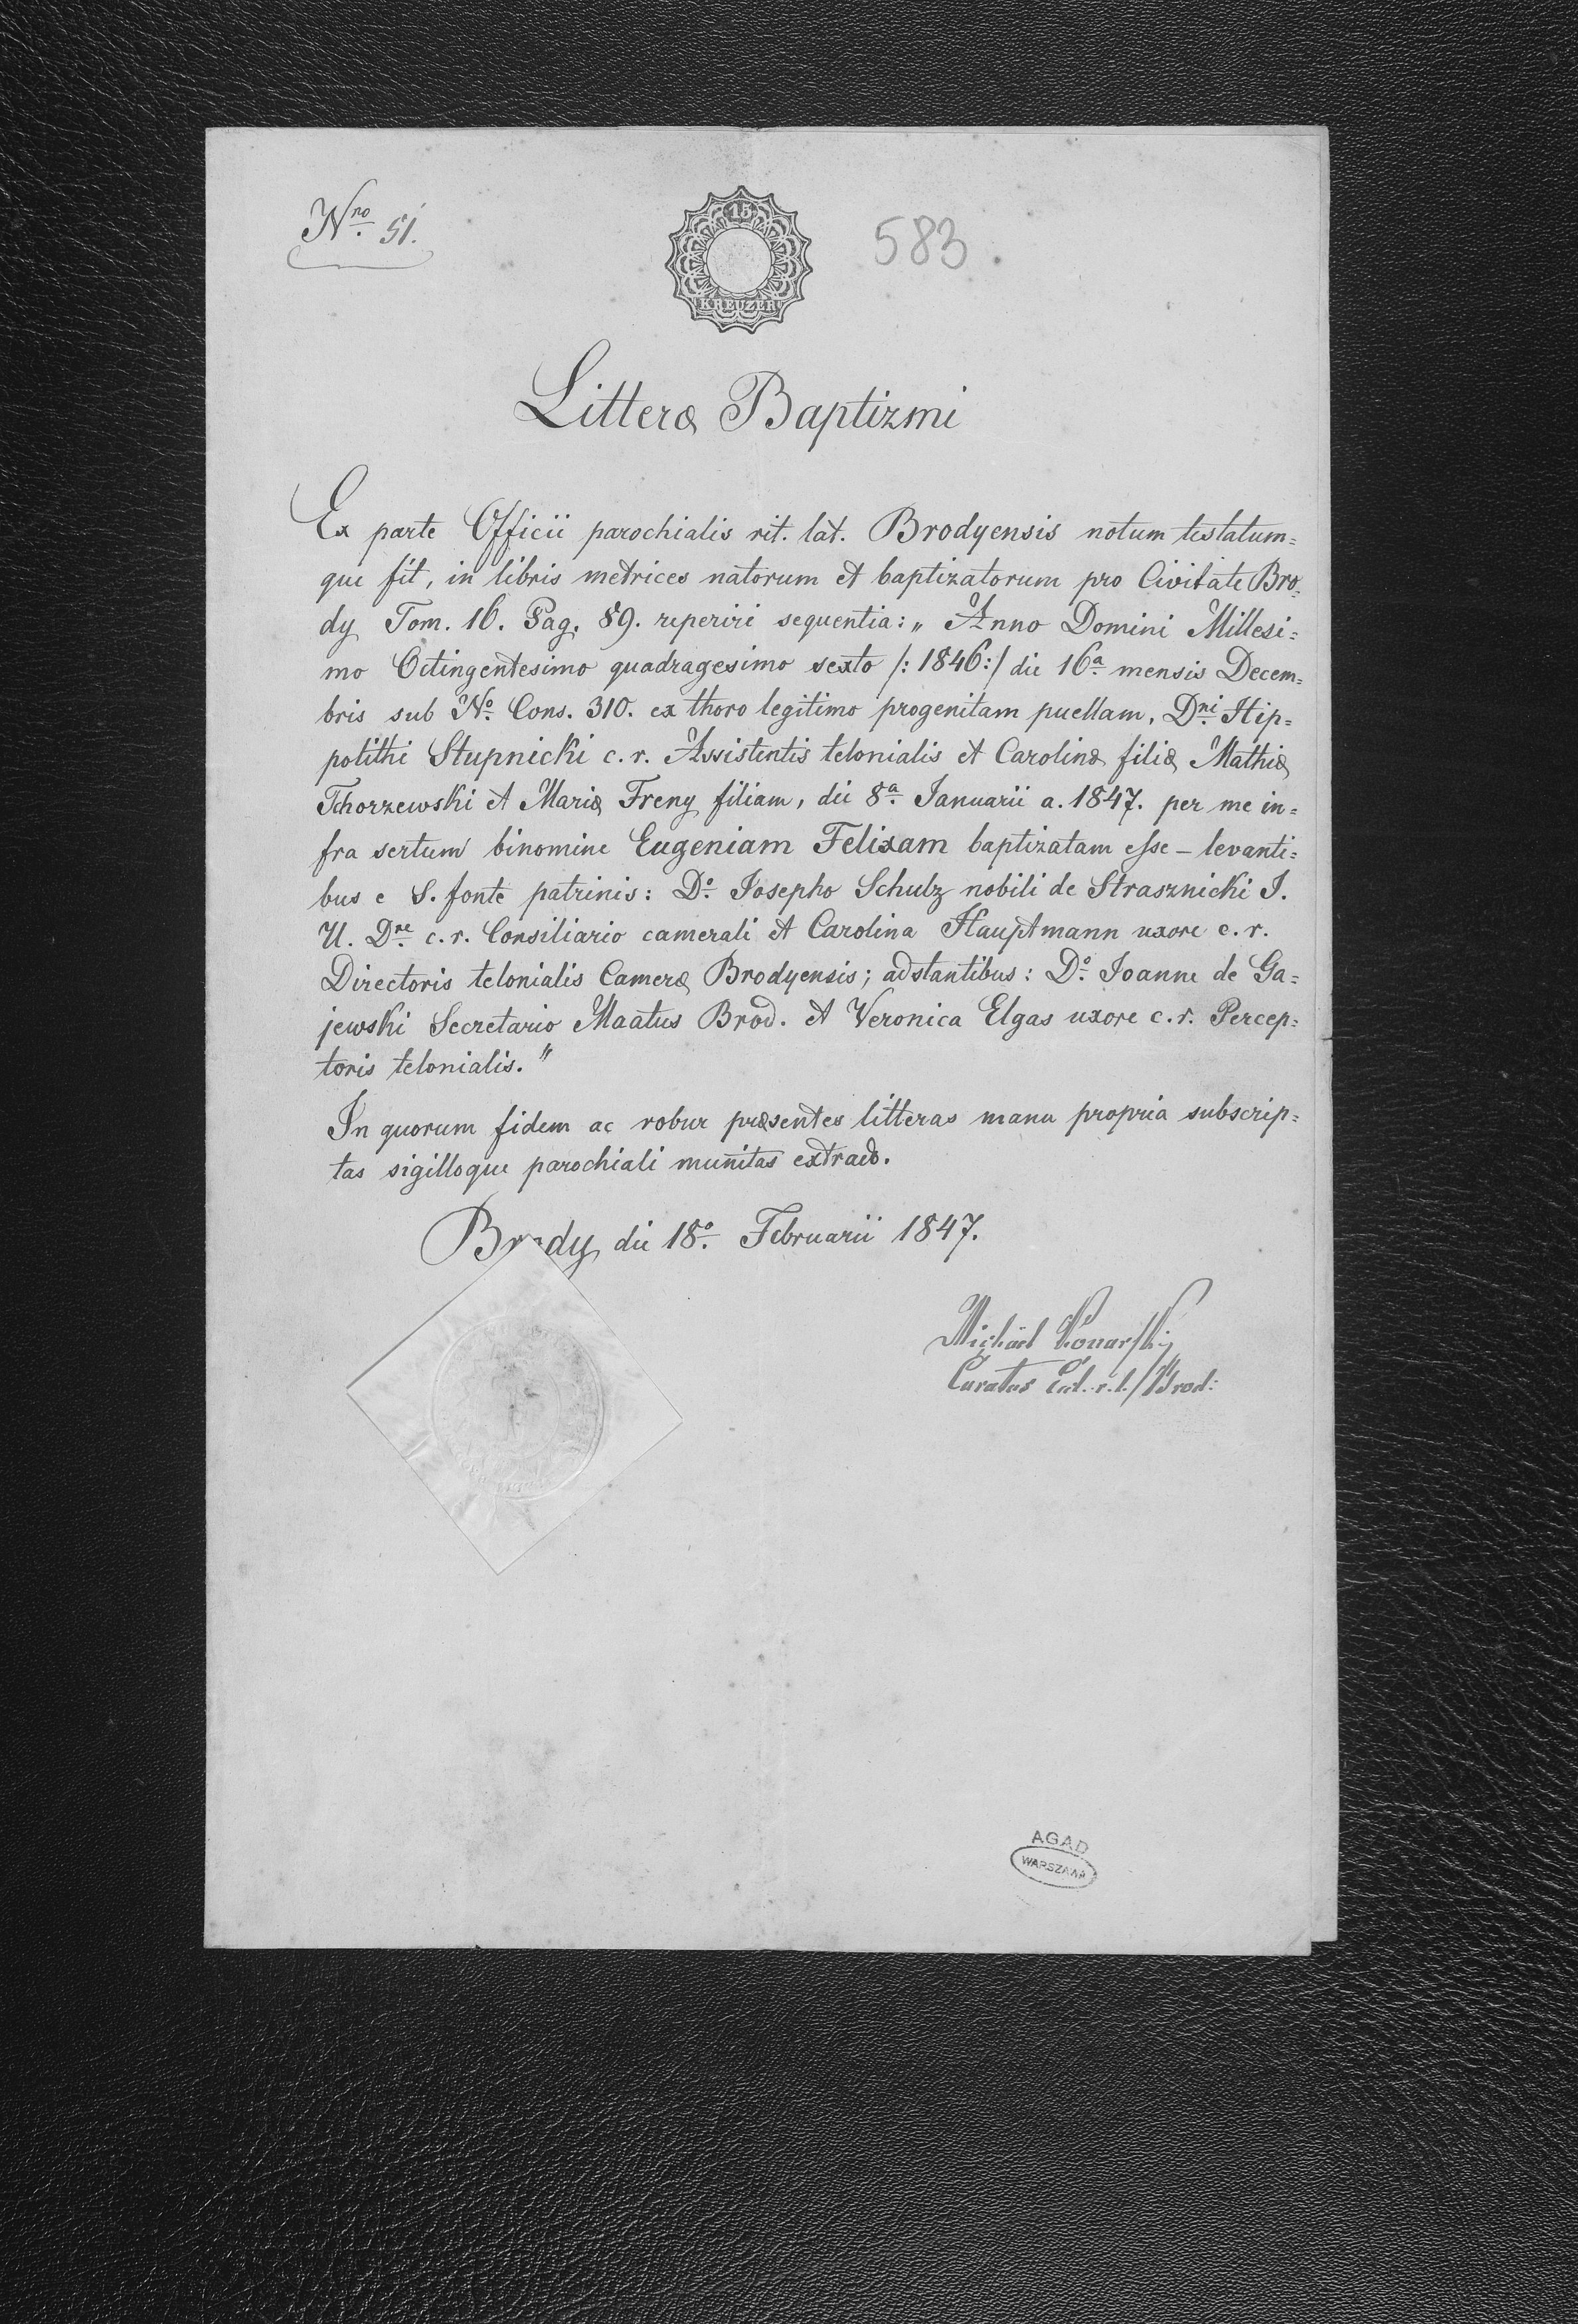 Nro. 51.
15
KREUZER
583.
Litteræ Baptizmi
Ex parte Officii parochialis rit. lat. Brodyensis notum testatum=
que fit, in libris metrices natorum et baptizatorum pro Civitate Bro=
dy Tom. 16. Pag. 89. reperiri sequentia: „ Anno Domini Millesi=
mo Octingentesimo quadragesimo sexto /: 1846 :/ die 16a. mensis Decem=
bris sub No. Cons. 310. ex thoro legitimo progenitam puellam, Dni. Hip=
polithi Stupnicki c. r. Assistentis telonialis et Carolinæ filiæ Mathiæ
Tchorzewski et Mariæ Freny filiam, die 8a. Januarii a. 1847. per me in=
fra sertum binomine Eugeniam Felixam baptizatam esse – levanti=
bus e S. fonte patrinis: Do. Josepho Schulz nobili de Strasznicki J.
U. Dre. c. r. Consiliario camerali et Carolina Hauptmann uxore c. r.
Directoris telonialis Cameræ Brodyensis; adstantibus: Do. Joanne de Ga=
jewski Secretario Maatus Brod. et Veronica Elgas uxore c. r. Percep=
toris telonialis."
In quorum fidem ac robur præsentes litteras manu propria subscrip=
tas sigilloque parochiali munitas extrado.
Brody die 18o. Februarii 1847.
Michael Konarski
Curatus r. l. Brod:
AGAD
WARSZAWA